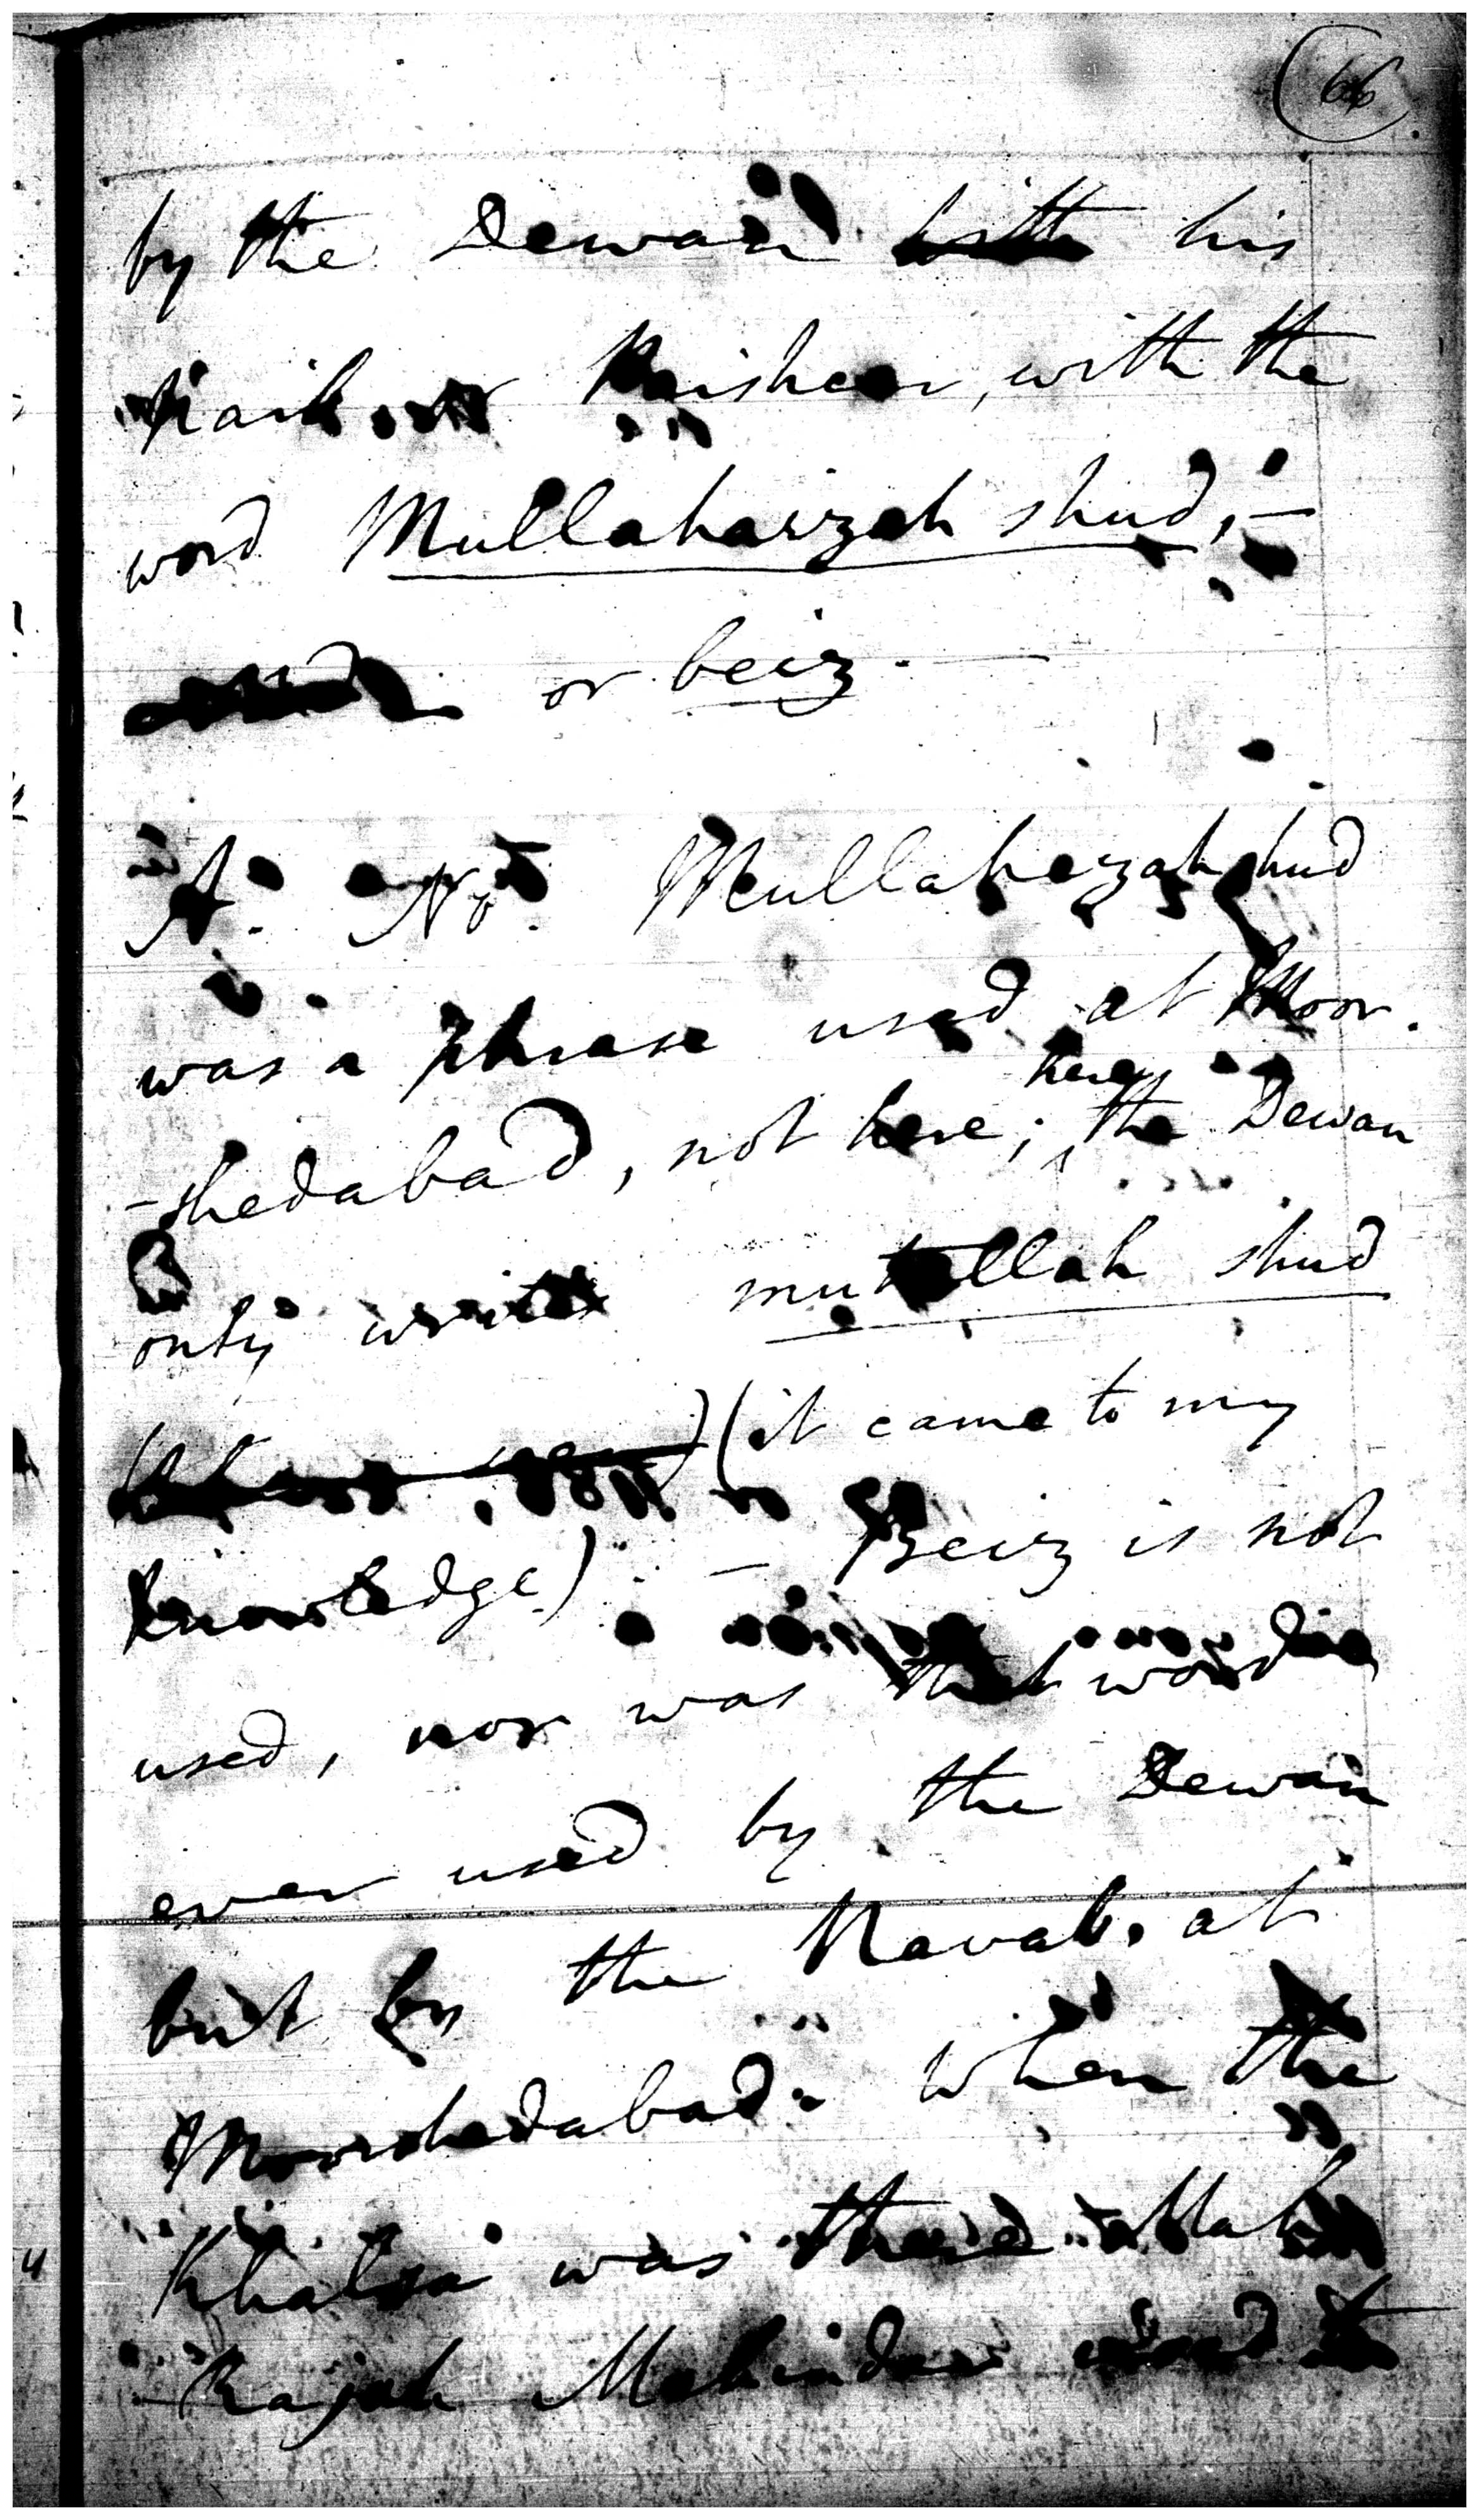 66
by the Dewan his
Naib, or Peishcar, with the
word Mullahaizah shud, –
or beiz. –
A. No. Mullahezah shud
was a phrase used at Moor.
here
-shedabad, not here; the Dewan
only writes mutallah shud
(it came to my
knowledge) – Beiz is not
used, nor was that word
ever used by the Dewan
but by the Navab. at
Moorshedabad. When the
Khalsa was there Mah
-Rajah Mohinder used to